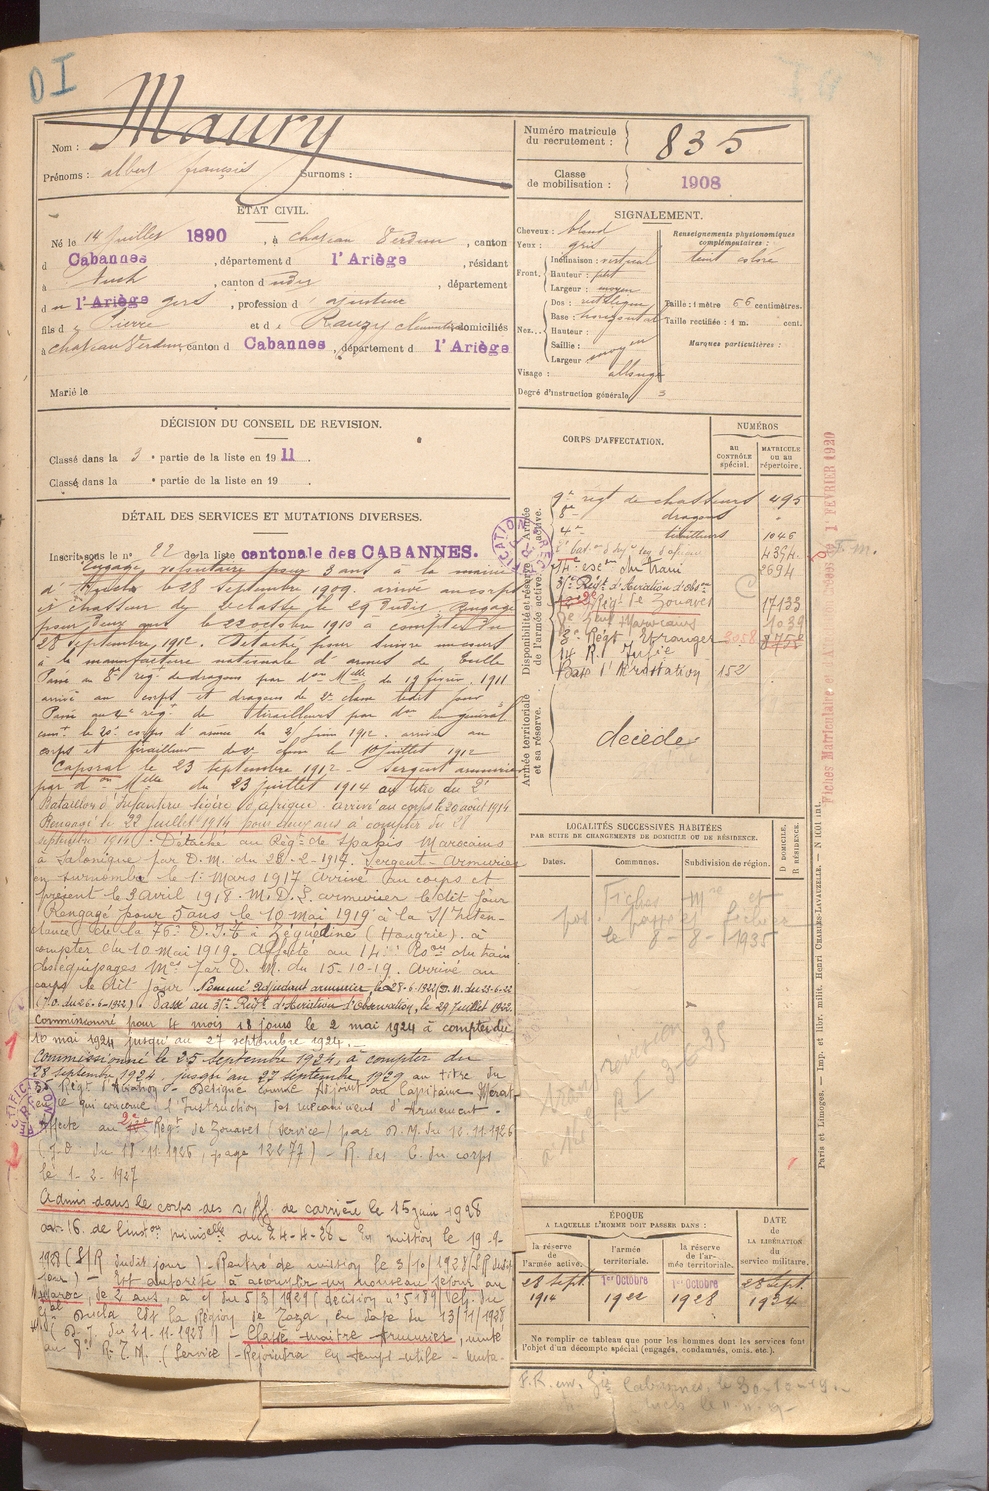 D I
Nom : Maury
Prénoms : albert françois Surnoms :
Numéro matricule du recrutement : 835
Classe de mobilisation : 1908
ÉTAT CIVIL.
Né le 14 juillet 1890, à chateau Verdun, canton
d Cabannes, département d l'Ariège, résidant
à Auch, canton d udit, département
d u l'Ariège gers, profession d' ajusteur
fils d e Pierre et d e Rauzy domiciliés
à chateau Verdun canton d Cabannes, département d l'Ariège
Marié le
SIGNALEMENT.
Cheveux : blond
Yeux : gris
Front, Inclinaison : vertical
Hauteur : petit
Largeur : moyen
Nez, Dos : rectiligne
Base : horizontal
Hauteur :
Saillie :
Largeur : moyen
Visage : allongé
Degré d'instruction générale, 3
Renseignements physionomiques complémentaires :
teint coloré
Taille : 1 mètre 66 centimètres.
Taille rectifiée : 1 m. cent.
Marques particulières :
DÉCISION DU CONSEIL DE REVISION.
Classé dans la 3e partie de la liste en 1911.
Classé dans la e partie de la liste en 19 .
DÉTAIL DES SERVICES ET MUTATIONS DIVERSES.
Inscrit sous le n° 22 de la liste cantonale des CABANNES.
Engagé volontaire pour 3 ans à la mairie
d'Auch le 28 septembre 1909. arrivé au corps
et chasseur de 2e classe le 29 dudit. Rengagé
pour deux ans le 22 octobre 1910 à compter du
28 septembre 1912. Détaché pour suivre un cours
à la manufacture nationale d'armes de Tulle
Passé au 8e régt de dragons par don Melle du 19 février 1911
arrivé au corps et dragons de 2e classe ledit jour
Passé au 4e régt de tirailleurs par don du général
comt le 20e corps d'armée du juin 1912. arrivé au
corps et tirailleur de 2e classe le 10 juillet 1912
Caporal le 23 septembre 1912 - Sergent armurier
par don Melle du 23 juillet 1914 au titre du 2e
Bataillon d'Infanterie légère d'afrique. arrivé au corps le 20 août 1914
Rengagé le 22 juillet 1914 pour cinq ans à compter du 28
septembre 1914. Détaché au Régt de Spahis Marocains
à Salonique par D.M. du 28-2-1917. Sergent-Armurier
en surnombre le 1er Mars 1917 Arrivé au corps et
présent le 3 avril 1918. M.D.L armurier le dit jour
Rengagé pour 5 ans le 10 mai 1919 à la S/Inten-
dance de la 76e D.I. à (Hongrie). à
compter du 10 mai 1919. Affecté au 14e Eson du train
des équipages Mres par D.M. du 15-10-19. Arrivé au
corps le dit jour. Nommé adjudant armurier le 28-6-1922 (D.M. du 23-6-22
(J.O. du 26-6-1922). Passé au 31e Régt d'Aviation d'Observation, le 29 juillet 1922.
Commissionné pour 4 mois 18 jours le 2 mai 1924 à compter du
10 mai 1924 jusqu'au 27 septembre 1924.
Commissionné le 25 septembre 1924, à compter du
28 septembre 1924, jusqu'au 27 septembre 1929 au titre du
Régt d'Aviation. Désigné comme Adjoint au Capitaine
ce qui concerne l'Instruction des mécaniciens d'Armement.
Affecté au 2e Régt de Zouaves (service) par D.M. du 12.11.1926
(J.O. du 18-11-1926, page 12277) - R. des C. du corps
le 1-2-1927
Admis dans le corps des s/off. de carrière le 15 juin 1928
art. 16 de l'inston minielle du 24-4-28 - En mission le 19-9-
1928 (S/R dudit jour). Rentré de mission le 3/10/1928 (S/R dudit
jour) - Est autorisé à accomplir un nouveau séjour au
Maroc, de 2 ans, à c/ du 5/3/1929 (décision n° 5189/ du
la Région de Taza, en date du 13/11/1928
du 21-11-1928) - Classé maître armurier, muté
au 8e R.T.M. (Service) - Rejoindra en temps utile - muta-
CORPS D'AFFECTATION.
NUMÉROS
au CONTRÔLE spécial.
MATRICULE ou au répertoire.
Disponibilité et réserve de l'armée active.
Armée active.
9e régt de chasseurs 495
8e - dragons "
4e - tirailleurs 1046
2e bat.on d'Infie leg. d'afrique 4394
14e escon du train 2694
31e Régt d'Aviation d'Obson
2e Régt de Zouaves 17133
8e Tirail. Marocains 1039
3e Régt Etranger 3058 8752
14 R.I. Infie
Baon d'Aérostation 152
Armée territoriale et sa réserve.
décédé
LOCALITÉS SUCCESSIVES HABITÉES
PAR SUITE DE CHANGEMENTS DE DOMICILE OU DE RÉSIDENCE.
Dates. Communes. Subdivision de région. D DOMICILE, R RÉSIDENCE.
Fiches Mre et
pos. passées fichier
le 8-8-1935
révision
R I 3-6-35
ÉPOQUE
A LAQUELLE L'HOMME DOIT PASSER DANS :
la réserve de l'armée active.
l'armée territoriale.
la réserve de l'armée territoriale.
DATE DE LA LIBÉRATION du service militaire.
28 Sept. 1914
1er Octobre 1922
1er Octobre 1928
28 Sept. 1934
Ne remplir ce tableau que pour les hommes dont les services font
l'objet d'un décompte spécial (engagés, condamnés, omis. etc.).
Paris et Limoges. — Imp. et libr. milit. Henri CHARLES-LAVAUZELLE. — N 1001 int.
1er FÉVRIER 1920